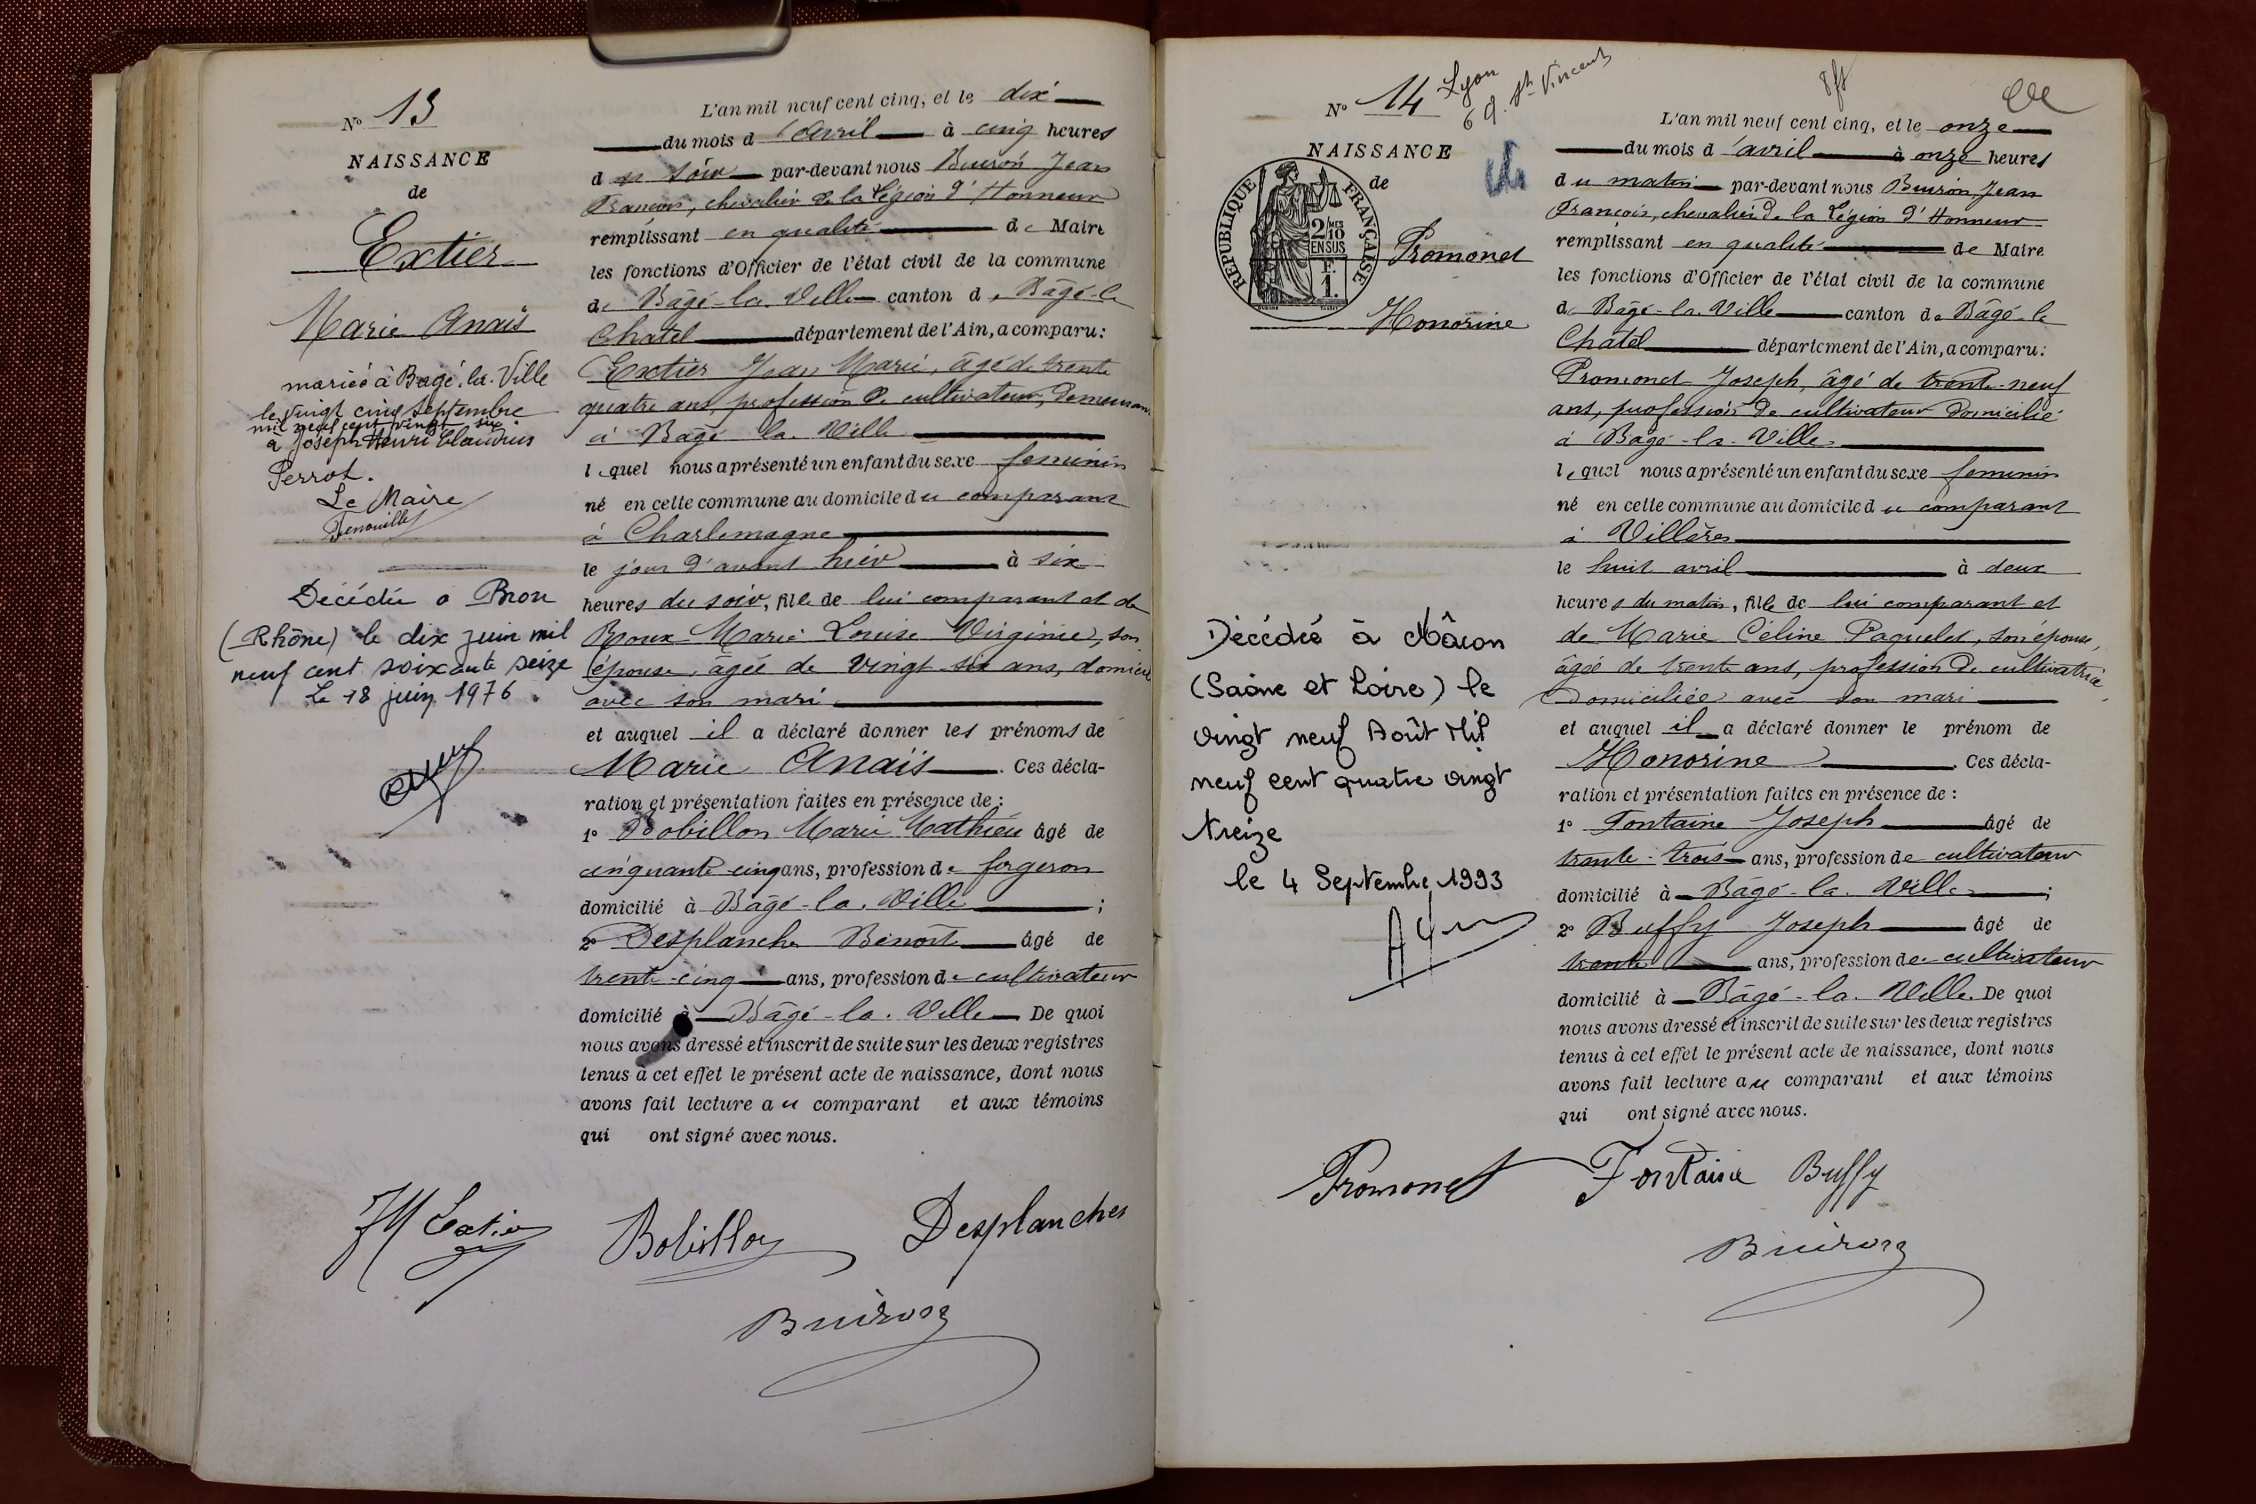 N° 13
NAISSANCE
de
Extier
Marie Anaïs
mariée à Bagé-la-Ville
le vingt cinq septembre
mil neuf cent vingt six
à Joseph Henri Claudius
Perrot.
Le Maire
Décédée à Bron
(Rhône) le dix juin mil
neuf cent soixante seize
Le 18 juin 1976.
L'an mil neuf cent cinq, et le dix
du mois d'avril à cinq heures
du soir par-devant nous Buiron Jean
François, chevalier de la Légion d'Honneur
remplissant en qualité de Maire
les fonctions d'Officier de l'état civil de la commune
de Bâgé-la-Ville canton de Bâgé-le
Chatel département de l'Ain, a comparu:
Extier Jean Marie, âgé de trente
quatre ans, profession de cultivateur, demeurant
à Bâgé la Ville
lequel nous a présenté un enfant du sexe feminin
né en cette commune au domicile du comparant
à Charlemagne
le jour d'avant hier à six
heures du soir, fille de lui comparant et de
Roux Marie Louise Virginie, son
épouse, âgée de vingt six ans, domicil
avec son mari
et auquel il a déclaré donner les prénoms de
Marie Anaïs. Ces décla-
ration et présentation faites en présence de:
1° Bobillon Marie Mathieu âgé de
cinquante cinq ans, profession de forgeron
domicilié à Bâgé-la-Ville;
2° Desplanche Benoît âgé de
trente-cinq ans, profession de cultivateur
domicilié à Bâgé-la-Ville De quoi
nous avons dressé et inscrit de suite sur les deux registres
tenus à cet effet le présent acte de naissance, dont nous
avons fait lecture au comparant et aux témoins
qui ont signé avec nous.
JM Extier Bobillon Desplanches
Buiron
N° 14
Lyon
6 q. St Vincent
NAISSANCE
de
REPUBLIQUE FRANÇAISE
2/10 MES
EN SUS
F.
1.
Promonet
Honorine
Décédée à Mâcon
(Saône et Loire) le
vingt neuf Août Mil
neuf cent quatre vingt
treize
le 4 Septembre 1993
L'an mil neuf cent cinq, et le onze
du mois d'avril à onze heures
du matin par-devant nous Buiron Jean
François, chevalier de la Légion d'Honneur
remplissant en qualité de Maire
les fonctions d'Officier de l'état civil de la commune
de Bâgé-la-Ville canton de Bâgé-le
Chatel département de l'Ain, a comparu:
Promonet Joseph, âgé de trente-neuf
ans, profession de cultivateur domicilié
à Bâgé-la-Ville
lequel nous a présenté un enfant du sexe feminin
né en cette commune au domicile du comparant
à Villères
le huit avril à deux
heures du matin, fille de lui comparant et
de Marie Céline Paquelet, son épouse,
âgée de trente ans, profession de cultivatrice,
domiciliée avec son mari
et auquel il a déclaré donner le prénom de
Honorine. Ces décla-
ration et présentation faites en présence de:
1° Fontaine Joseph âgé de
trente-trois ans, profession de cultivateur
domicilié à Bâgé-la-Ville;
2° Buffy Joseph âgé de
trente ans, profession de cultivateur
domicilié à Bâgé-la-Ville. De quoi
nous avons dressé et inscrit de suite sur les deux registres
tenus à cet effet le présent acte de naissance, dont nous
avons fait lecture au comparant et aux témoins
qui ont signé avec nous.
Promonet Fontaine Buffy
Buiron